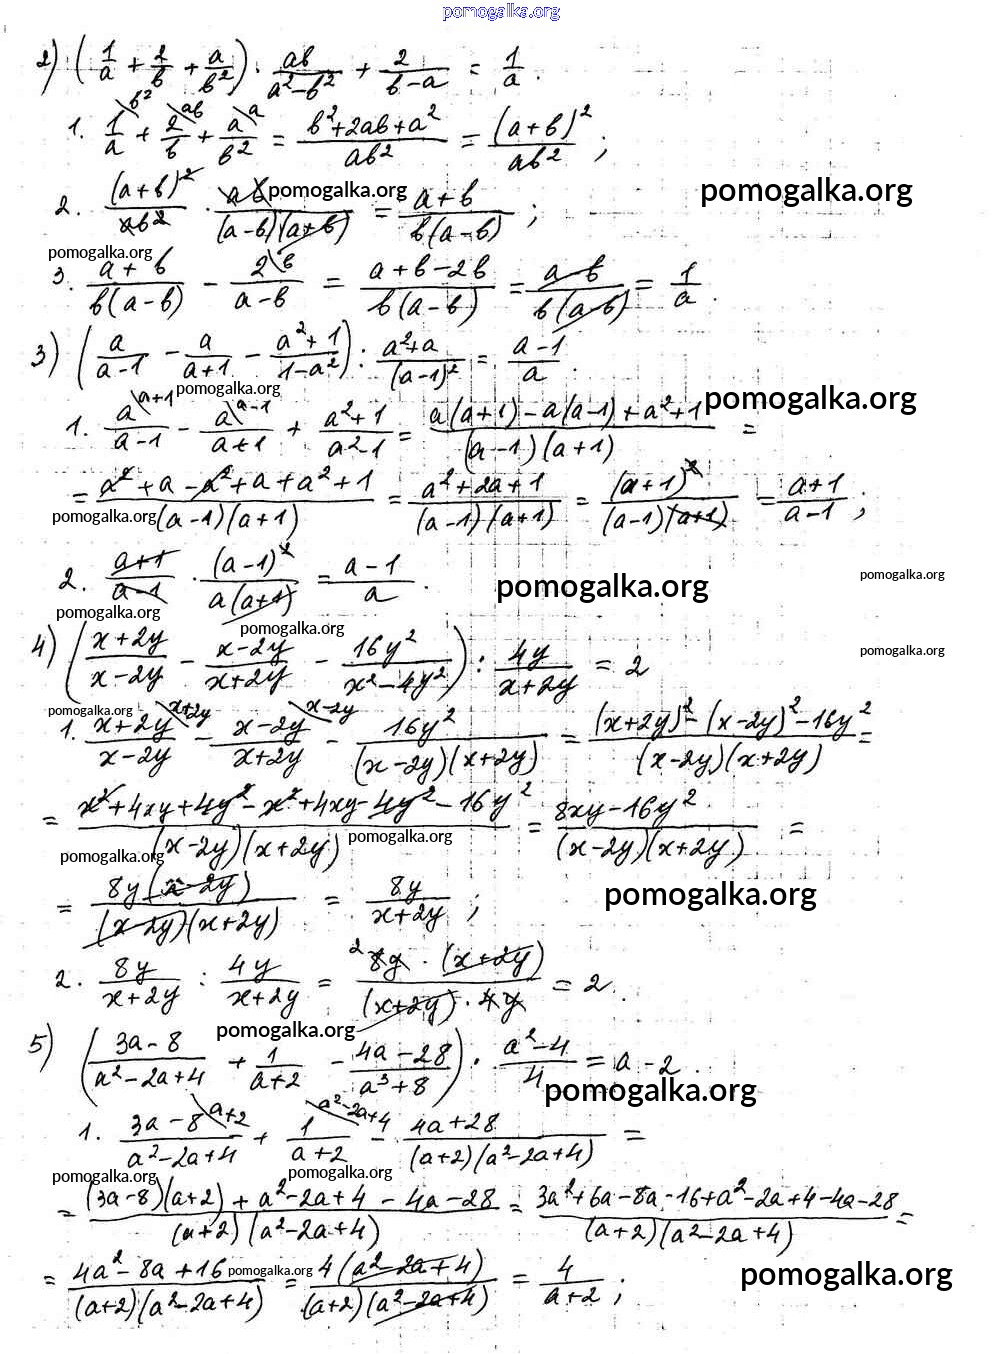 pomogalka.org
2) (1/a + 2/b + a/b²) · ab/(a²-b²) + 2/(b-a) = 1/a.
1. 1/a \b² + 2/b \ab + a/b² \a = (b²+2ab+a²)/(ab²) = (a+b)²/(ab²);
2. (a+b)²/(ab²) · ab/((a-b)(a+b)) = (a+b)/(b(a-b));
pomogalka.org pomogalka.org
pomogalka.org
3. (a+b)/(b(a-b)) - 2/(a-b) \b = (a+b-2b)/(b(a-b)) = (a-b)/(b(a-b)) = 1/a.
3) (a/(a-1) - a/(a+1) - (a²+1)/(1-a²)) : (a²+a)/(a-1)² = (a-1)/a.
pomogalka.org pomogalka.org
1. a/(a-1) \a+1 - a/(a+1) \a-1 + (a²+1)/(a²-1) = (a(a+1)-a(a-1)+a²+1)/((a-1)(a+1)) =
= (a²+a-a²+a+a²+1)/((a-1)(a+1)) = (a²+2a+1)/((a-1)(a+1)) = (a+1)²/((a-1)(a+1)) = (a+1)/(a-1);
pomogalka.org
2. (a+1)/(a-1) · (a-1)²/(a(a+1)) = (a-1)/a.
pomogalka.org pomogalka.org
pomogalka.org
pomogalka.org
4) ((x+2y)/(x-2y) - (x-2y)/(x+2y) - 16y²/(x²-4y²)) : 4y/(x+2y) = 2
pomogalka.org
pomogalka.org
1. (x+2y)/(x-2y) \x+2y - (x-2y)/(x+2y) \x-2y - 16y²/((x-2y)(x+2y)) = ((x+2y)²-(x-2y)²-16y²)/((x-2y)(x+2y)) =
= (x²+4xy+4y²-x²+4xy-4y²-16y²)/((x-2y)(x+2y)) = (8xy-16y²)/((x-2y)(x+2y)) =
pomogalka.org pomogalka.org
= 8y(x-2y)/((x-2y)(x+2y)) = 8y/(x+2y);
pomogalka.org
2. 8y/(x+2y) : 4y/(x+2y) = ²8y·(x+2y)/((x+2y)·4y) = 2.
pomogalka.org
5) ((3a-8)/(a²-2a+4) + 1/(a+2) - (4a-28)/(a³+8)) · (a²-4)/4 = a-2.
pomogalka.org
1. (3a-8)/(a²-2a+4) \a+2 + 1/(a+2) \a²-2a+4 - (4a+28)/((a+2)(a²-2a+4)) =
pomogalka.org pomogalka.org
= ((3a-8)(a+2)+a²-2a+4-4a-28)/((a+2)(a²-2a+4)) = (3a²+6a-8a-16+a²-2a+4-4a-28)/((a+2)(a²-2a+4)) =
= (4a²-8a+16)/((a+2)(a²-2a+4)) = 4(a²-2a+4)/((a+2)(a²-2a+4)) = 4/(a+2);
pomogalka.org pomogalka.org